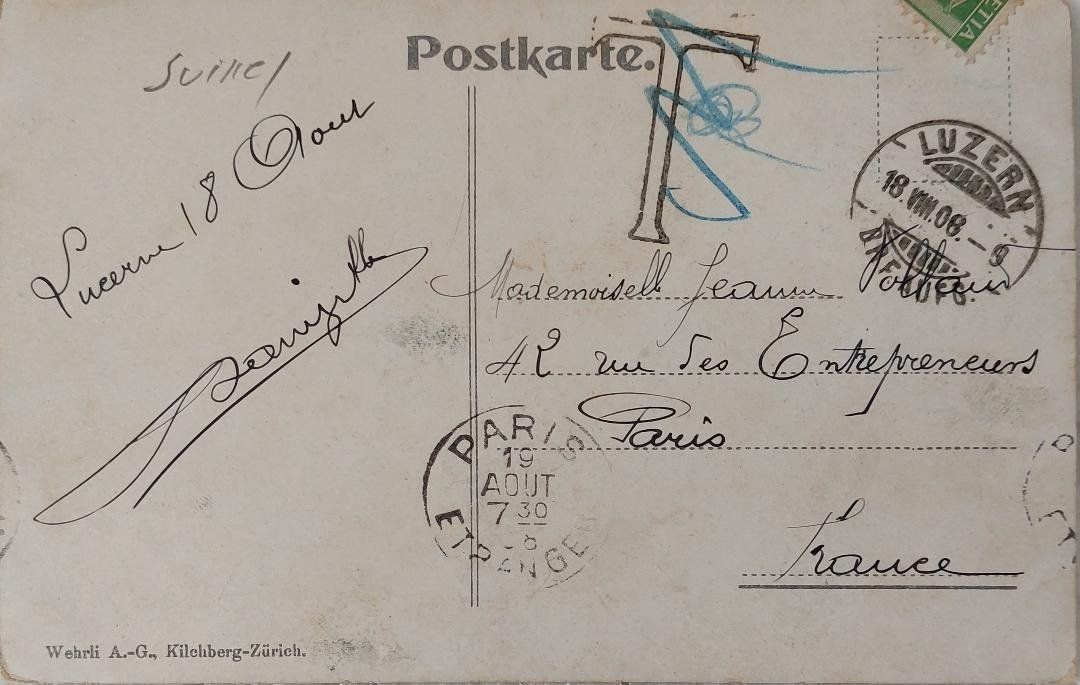 Postkarte.
T
ETIA
LUZERN
18.VIII.08.-9
Lucerne 18 Aout
Mademoiselle Jeanne
42 rue des Entrepreneurs
Paris
France
PARIS
19
AOUT
7 30
08
ETRANGER
Wehrli A.-G., Kilchberg-Zürich.